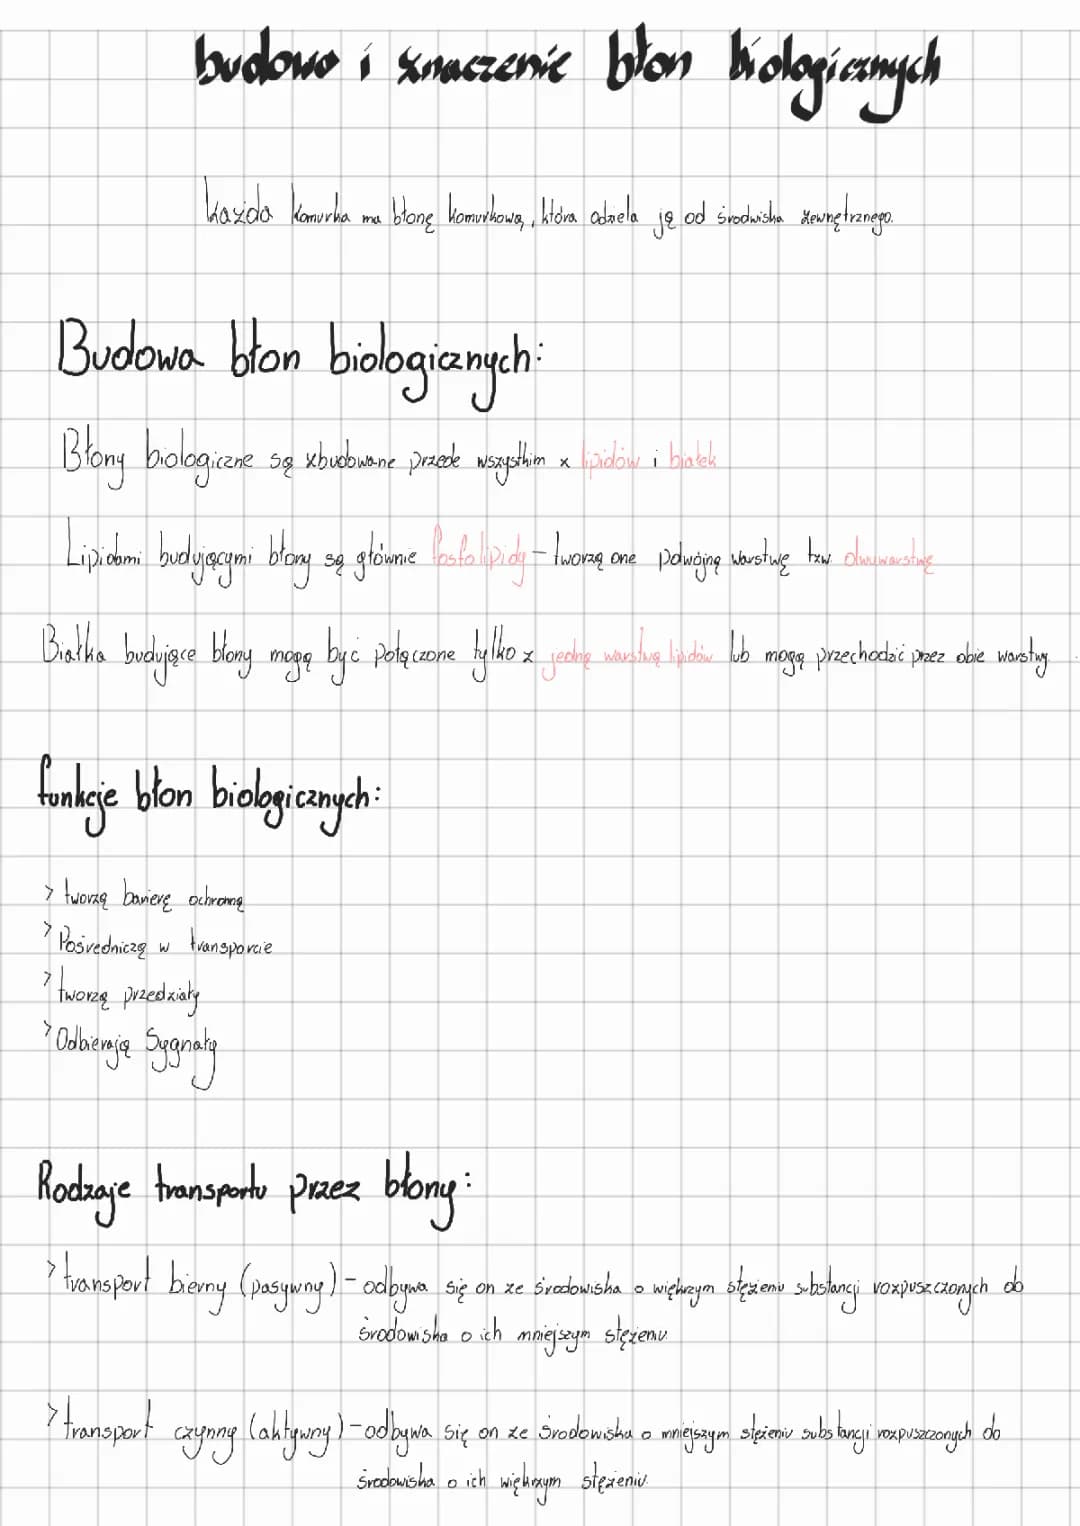 budowa i znaczenie błon biologicznych
każda komurka ma błonę komurkową, która odziela ją od środwiska zewnętrznego.
Budowa błon biologicznych:
Błony biologiczne są zbudowane przede wszystkim z lipidów i białek
Lipidami budującymi błony są głównie fosfolipidy - tworzą one podwójną warstwę tzw. dwuwarstwę
Białka budujące błony mogą być połączone tylko z jedną warstwą lipidów lub mogą przechodzić przez obie warstwy.
funkcje błon biologicznych:
> tworzą barierę ochronną
> Pośredniczą w transporcie
> tworzą przedziały
> Odbierają Sygnały
Rodzaje transportu przez błony:
> transport bierny (pasywny) - odbywa się on ze środowiska o większym stężeniu substancji rozpuszczonych do
środowiska o ich mniejszym stężeniu
> transport czynny (aktywny) - odbywa się on ze środowiska o mniejszym stężeniu substancji rozpuszczonych do
środowiska o ich większym stężeniu.